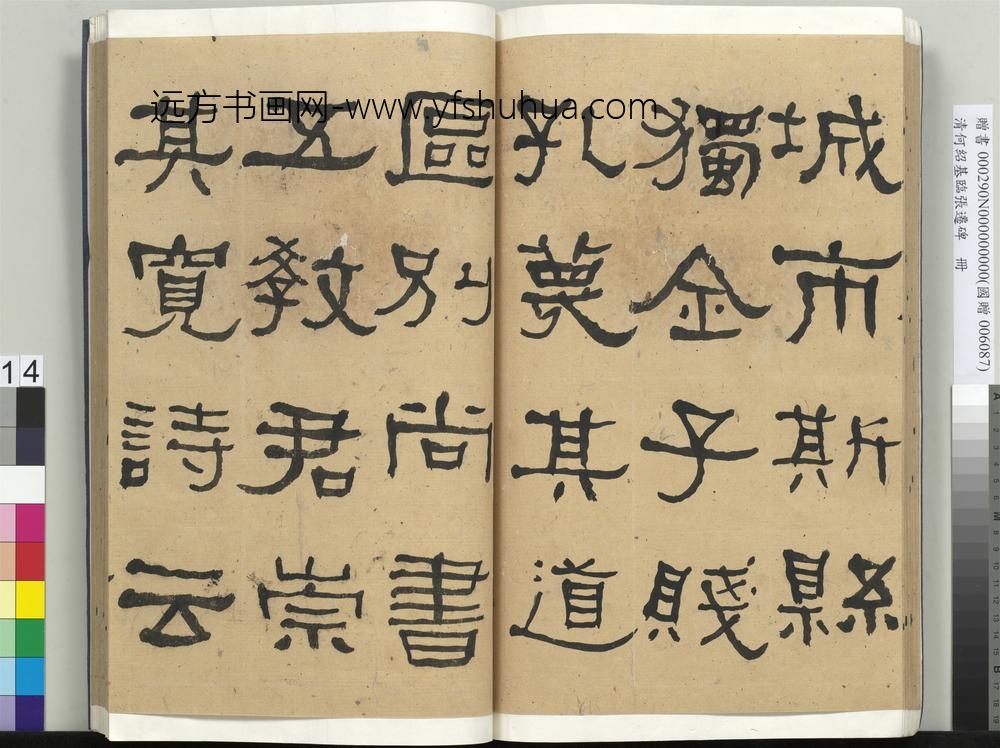 远方书画网-www.yfshuhua.com
城市斯縣
獨金子賤
孔蔑其道
區別尚書
五教君崇
其寬詩云
贈書 000290N000000000(國贈 006087)
清何紹基臨張遷碑 冊
14